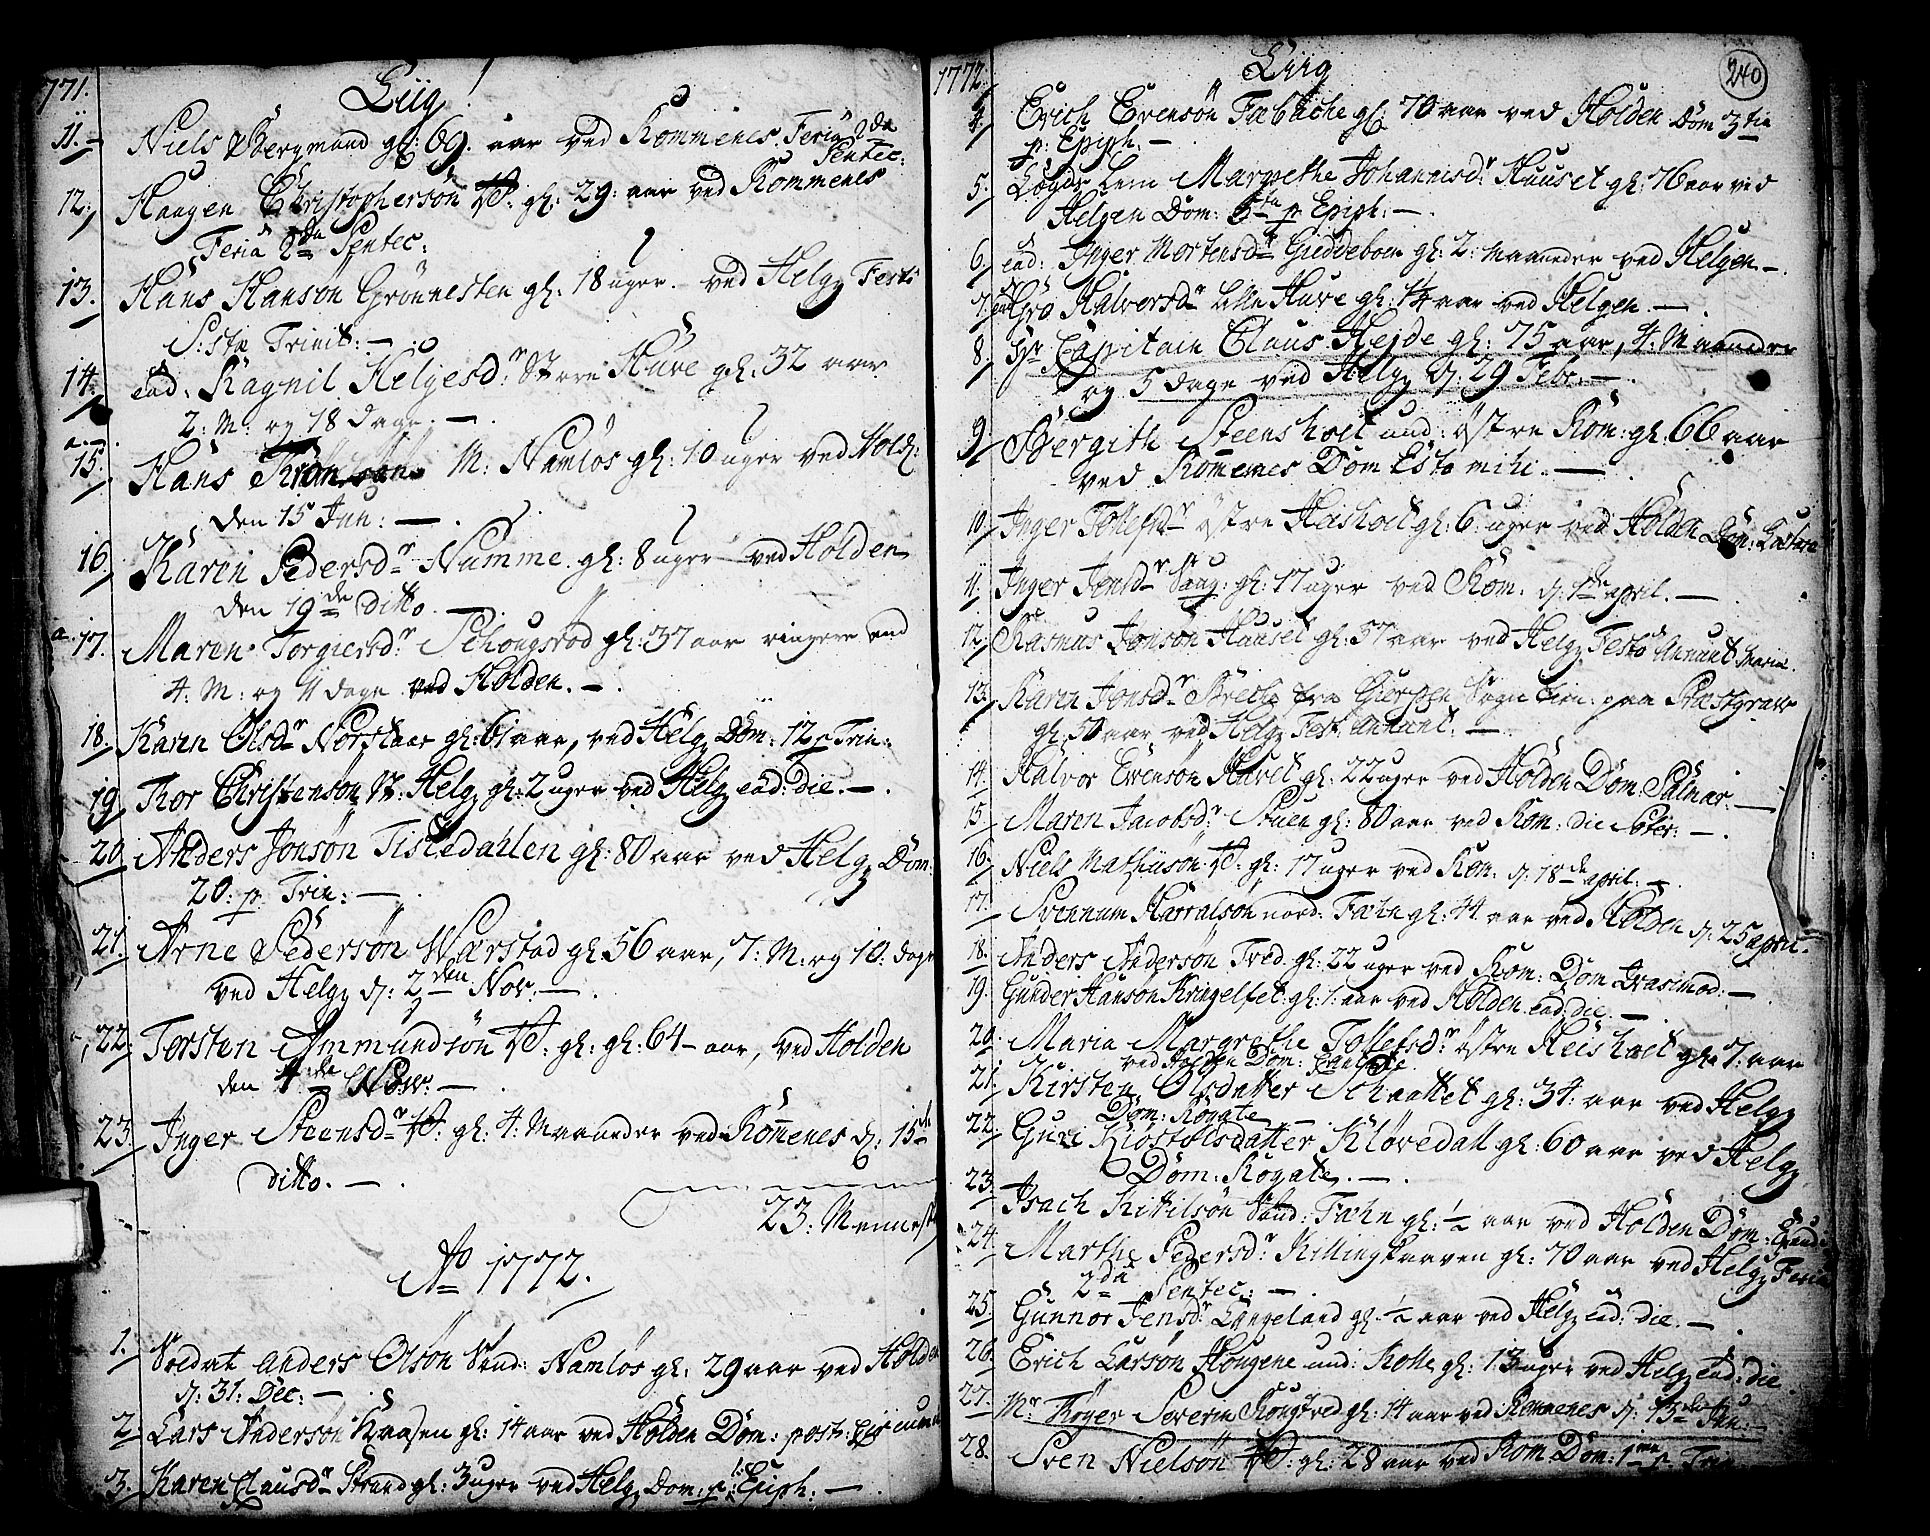 771.
Liig
11. Niels Bergmand gl: 69. aar ved Rommenes. Feria 2da
Pentec:
12. Haagen Christophersön gl: 29: aar ved Rommenes
Feria 2da Pentec:
13. Hans Hansön Grönnesten gl: 18 uger. ved Helg Festo
S:stæ Trinit: —
14. ead: Ragnil Helgesdr Store Huve gl: 32 aar
2: M: og 18 dage. —
15. Hans M: Namløs gl: 10 uger ved Hold:
den 15 Jun: —
16. Karen Pedersdr Namme gl: 8 uger ved Holden
den 19de ditto. —
17. Maren Torgiersdr gl: 37 aar ringere end
4: M: og 11 dage ved Holden. —
18. Karen Olsdr Norstaar gl: 61 aar, ved Helg Dom: 12 p Trin:
19. Thor Christensön Helg gl: 2 uger ved Helg ead: die. —
20. Anders Jonsön Tistedahlen gl: 80 aar ved Helg Dom:
20: p. Trin: —
21. Arne Pedersön Warstad gl: 56 aar, 7: M: og 10. dage
ved Helg d: 2den Nov: —
22. Torsten Ammundsön gl: gl: 64 aar, ved Holden
den 4de Nov: —
23. Inger Steensdr gl: 4: Maaneder ved Romenes d: 15de
ditto. —
23: Mennesk
Ao 1772.
1. Soldat Anders Olsön Sønd: Namløs gl: 29 aar ved Holden
d: 31. Dec: —
2. Lars Andersön Haasen gl: 14 aar ved Holden Dom: post: Circumc
3. Karen Clausdr Strand gl: 3 uger ved Helg Dom: p: 1: Epiph: —
1772.
Liig
240
4. Erich Evensön Fabache gl: 70 aar ved Holden Dom 3tia
p: Epiph. —
5. Lægds Lem Margrethe Johannisdr Huuset gl: 76 aar ved
Helgen Dom: 5ta p Epiph: —
6. ead: Inger Mortensdr Gieddeboen gl: 2: Maaneder ved Helgen —
7. ead Gro Halversdr Lille Huve gl: 14 aar ved Helgen. —
8. Hr Capitain Claus Hejde gl: 75 aar, 4: Maaneder
og 5 dage ved Helg d: 29 Febr: —
9. Bergith Steensholt und: östre Rom: gl: 66 aar
ved Romenes Dom Esto mihi. —
10. Inger Tollefsdr östre Heisholt gl: 6 uger ved Holden Dom: Lætare
11. Inger Jensdr gl: 17 uger ved Rom: d: 1de april. —
12. Rasmus Jonsön Hauset gl: 57 aar ved Helg Festo Annunt Mariæ.
13. Karen Jonsdr fra Gierpen Sogn tien: paa Præstgrav
gl. 50 aar ved Helg Fest. Annunt: —
14. Halvor Evensön gl: 22 uger ved Holden Dom: Palmar: —
15. Maren Jacobsdr Stuen gl: 80 aar ved Rom: die —
16. Niels Mathiisön gl: 17 uger ved Rom. d: 18de april: —
17. Svennum Harralsön nord: Fæhn gl: 44 aar ved Holden d: 25 april
18. Anders Andersön Tved. gl: 22 uger ved Rom: Dom Qvasimod: —
19. Gunder Hansön Kringelfet: gl: 1: aar ved Holden ead: die —
20. Maria Margrethe Tollefsdr östre Heisholt gl: 7: aar
ved Holden Dom: Cantate
21. Kirsten Olsdatter Schaattet gl: 34: aar ved Helg
Dom: Rogate
22. Guri Kiostolsdatter Kløvedall gl: 60 aar ved Helg
Dom: Rogate. —
23. Isach Kittilsön Sønd: Fæhn gl: ½ aar ved Holden Dom: Exaudi
24. Marthe Pedersdr Killingkaaven gl: 70 aar ved Helg Feria
2da Pentec: —
25. Gunnor Jensdr Langeland gl. ½ aar ved Helg ead: die. —
26. Erich Larsön Hougene und: Rolle gl: 13 uger ved Helg ead: die
27. Mr Röyer Severin gl: 14 aar ved Romenes d: 13de Jun: —
28. Sven Nielsön gl: 28 aar ved Rom Dom: 1ma p: Trin